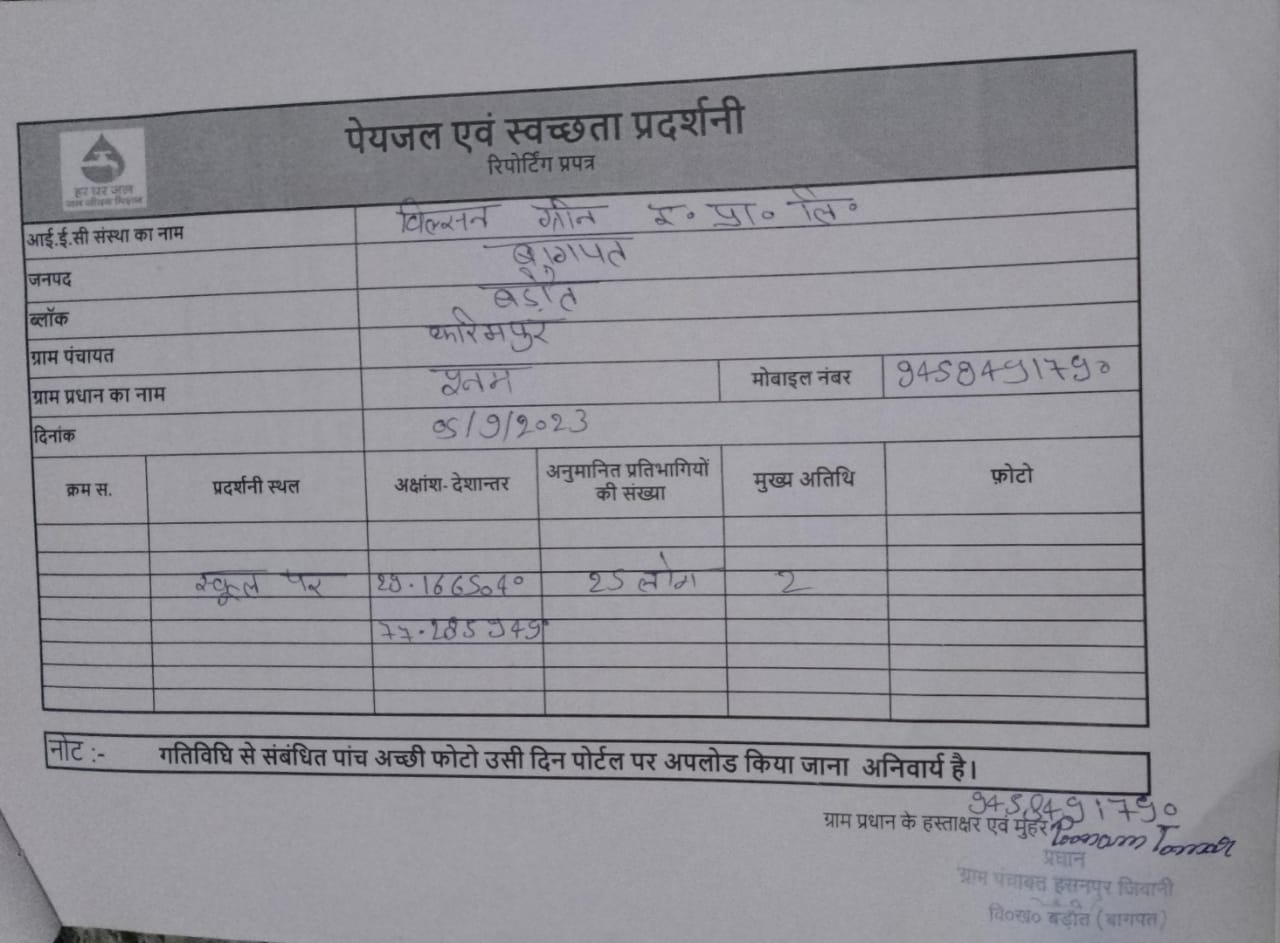 पेयजल एवं स्वच्छता प्रदर्शनी
रिपोर्टिंग प्रपत्र
हर घर जल
जल जीवन मिशन
आई.ई.सी संस्था का नाम विल्सन ग्रीन इ॰ प्रा॰ लि॰
जनपद बागपत
ब्लॉक बड़ौत
ग्राम पंचायत करिमपुर
ग्राम प्रधान का नाम मोबाइल नंबर 9458491790
दिनांक 05/9/2023
क्रम स. प्रदर्शनी स्थल अक्षांश- देशान्तर अनुमानित प्रतिभागियों की संख्या मुख्य अतिथि फ़ोटो
स्कूल पर 29.1665040 25 लोग 2
77.285949
नोट :- गतिविधि से संबंधित पांच अच्छी फोटो उसी दिन पोर्टल पर अपलोड किया जाना अनिवार्य है।
9458491790
ग्राम प्रधान के हस्ताक्षर एवं मुहर Poonam Tomar
प्रधान
ग्राम पंचायत हसनपुर जिवानी
वि०ख० बड़ौत (बागपत)